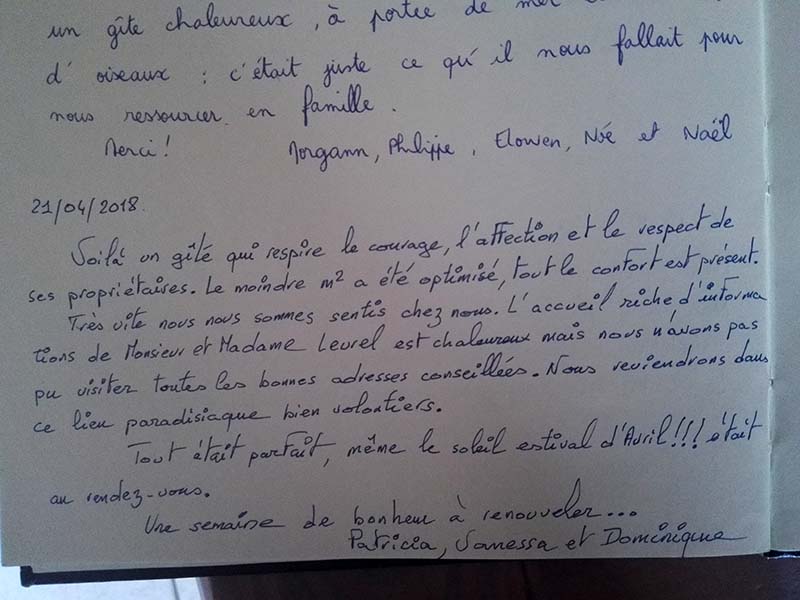 un gîte chaleureux, à portée de mer
d'oiseaux : c'était juste ce qu'il nous fallait pour
nous ressourcer en famille.
Merci! Morgann, Philippe, Elowen, Noé et Naël
21/04/2018.
Voilà un gîte qui respire le courage, l'affection et le respect de
ses propriétaires. Le moindre m² a été optimisé, tout le confort est présent.
Très vite nous nous sommes sentis chez nous. L'accueil riche d'informa
tions de Monsieur et Madame Leurel est chaleureux mais nous n'avons pas
pu visiter toutes les bonnes adresses conseillées. Nous reviendrons dans
ce lieu paradisiaque bien volontiers.
Tout était parfait, même le soleil estival d'Avril!!! était
au rendez-vous.
Une semaine de bonheur à renouveler...
Patricia, Vanessa et Dominique